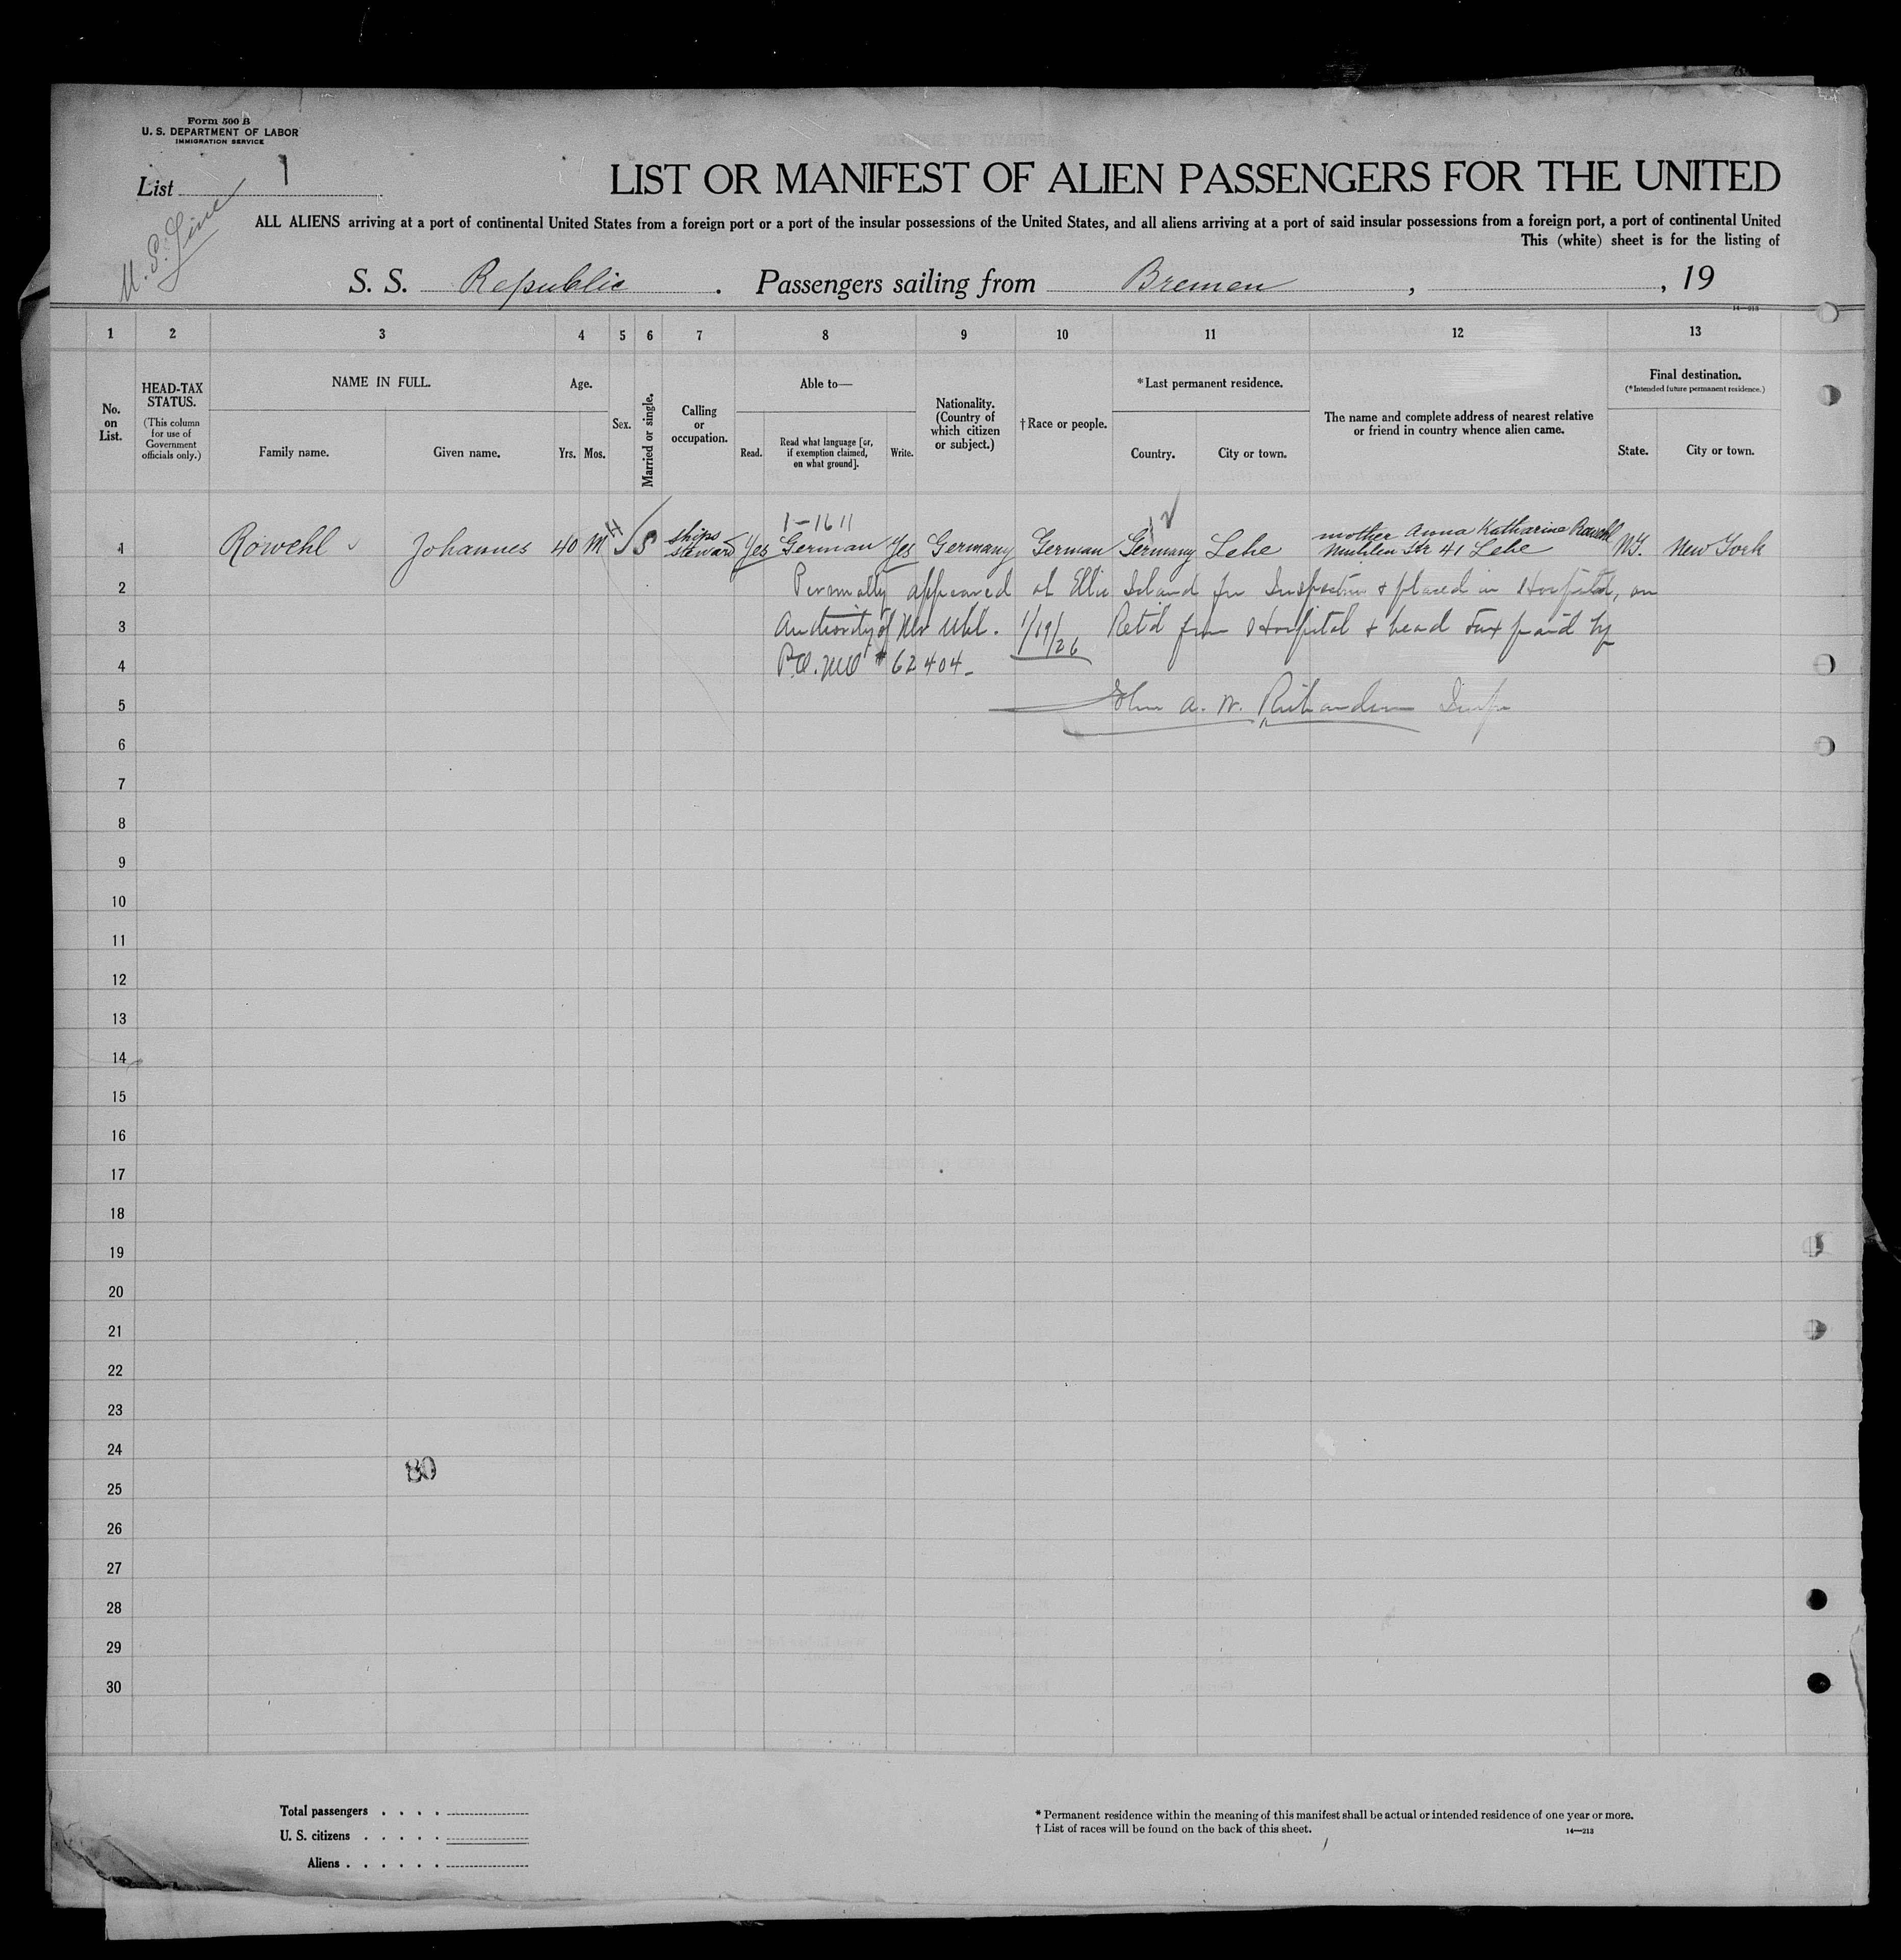 Form 500 B
U. S. DEPARTMENT OF LABOR
IMMIGRATION SERVICE
List 1
U. S. Line
LIST OR MANIFEST OF ALIEN PASSENGERS FOR THE UNITED
ALL ALIENS arriving at a port of continental United States from a foreign port or a port of the insular possessions of the United States, and all aliens arriving at a port of said insular possessions from a foreign port, a port of continental United
This (white) sheet is for the listing of
S. S. Republic . Passengers sailing from Bremen , , 19
14—213
1 2 3 4 5 6 7 8 9 10 11 12 13
No. on List.
HEAD-TAX STATUS.
(This column for use of Government officials only.)
NAME IN FULL.
Family name. Given name.
Age.
Yrs. Mos.
Sex.
Married or single.
Calling or occupation.
Able to—
Read. Read what language [or, if exemption claimed, on what ground]. Write.
Nationality. (Country of which citizen or subject.)
†Race or people.
*Last permanent residence.
Country. City or town.
The name and complete address of nearest relative or friend in country whence alien came.
Final destination.
(*Intended future permanent residence.)
State. City or town.
1-1611
1 Rowehl Johannes 40 M S ships steward Yes German Yes Germany German Germany Lehe mother Anna Katharine Rowehl Muhlen Str 41 Lehe N.Y. New York
2 Personally appeared at Ellis Island for Inspection & placed in Hospital, on
3 Authority of Mr Uhl. 1/19/26 Ret'd from Hospital & head tax paid by
4 P.O. MO #62404-
5 John A. W. Richardson Insp
6
7
8
9
10
11
12
13
14
15
16
17
18
19
20
21
22
23
24
80
25
26
27
28
29
30
Total passengers . . . .
U. S. citizens . . . . .
Aliens . . . . . .
* Permanent residence within the meaning of this manifest shall be actual or intended residence of one year or more.
† List of races will be found on the back of this sheet.
14—213